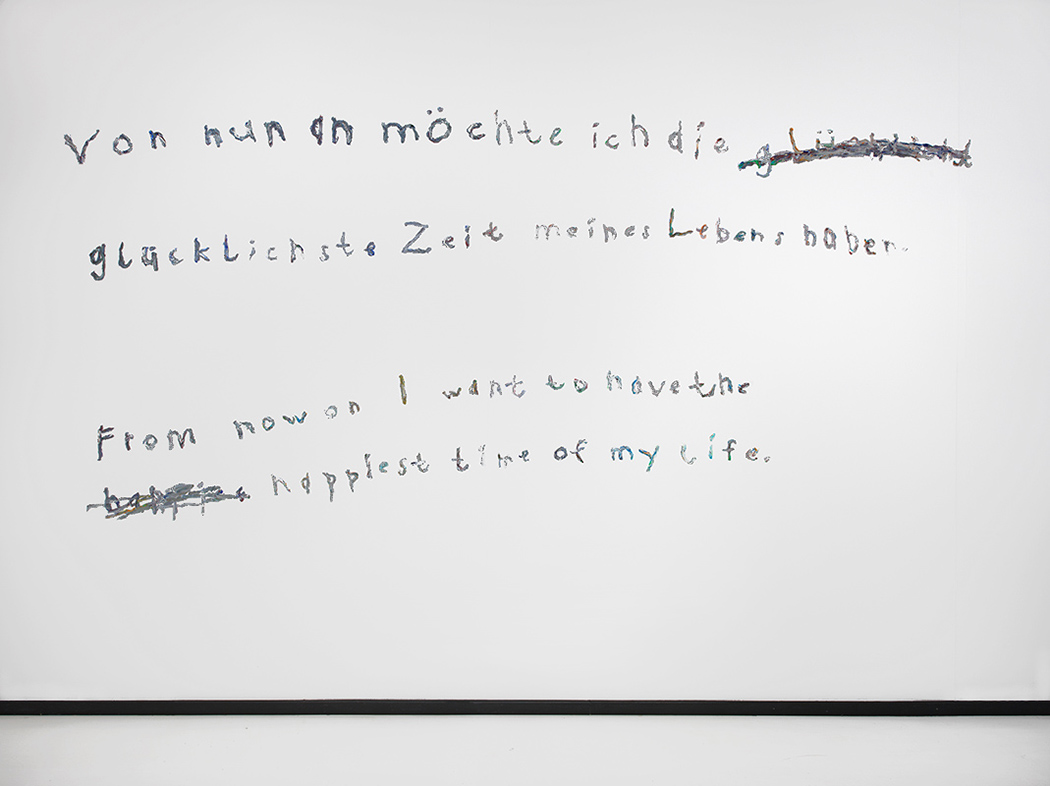 Von nun an möchte ich die
glücklichste Zeit meines Lebens haben.
From now on I want to have the
happiest time of my life.